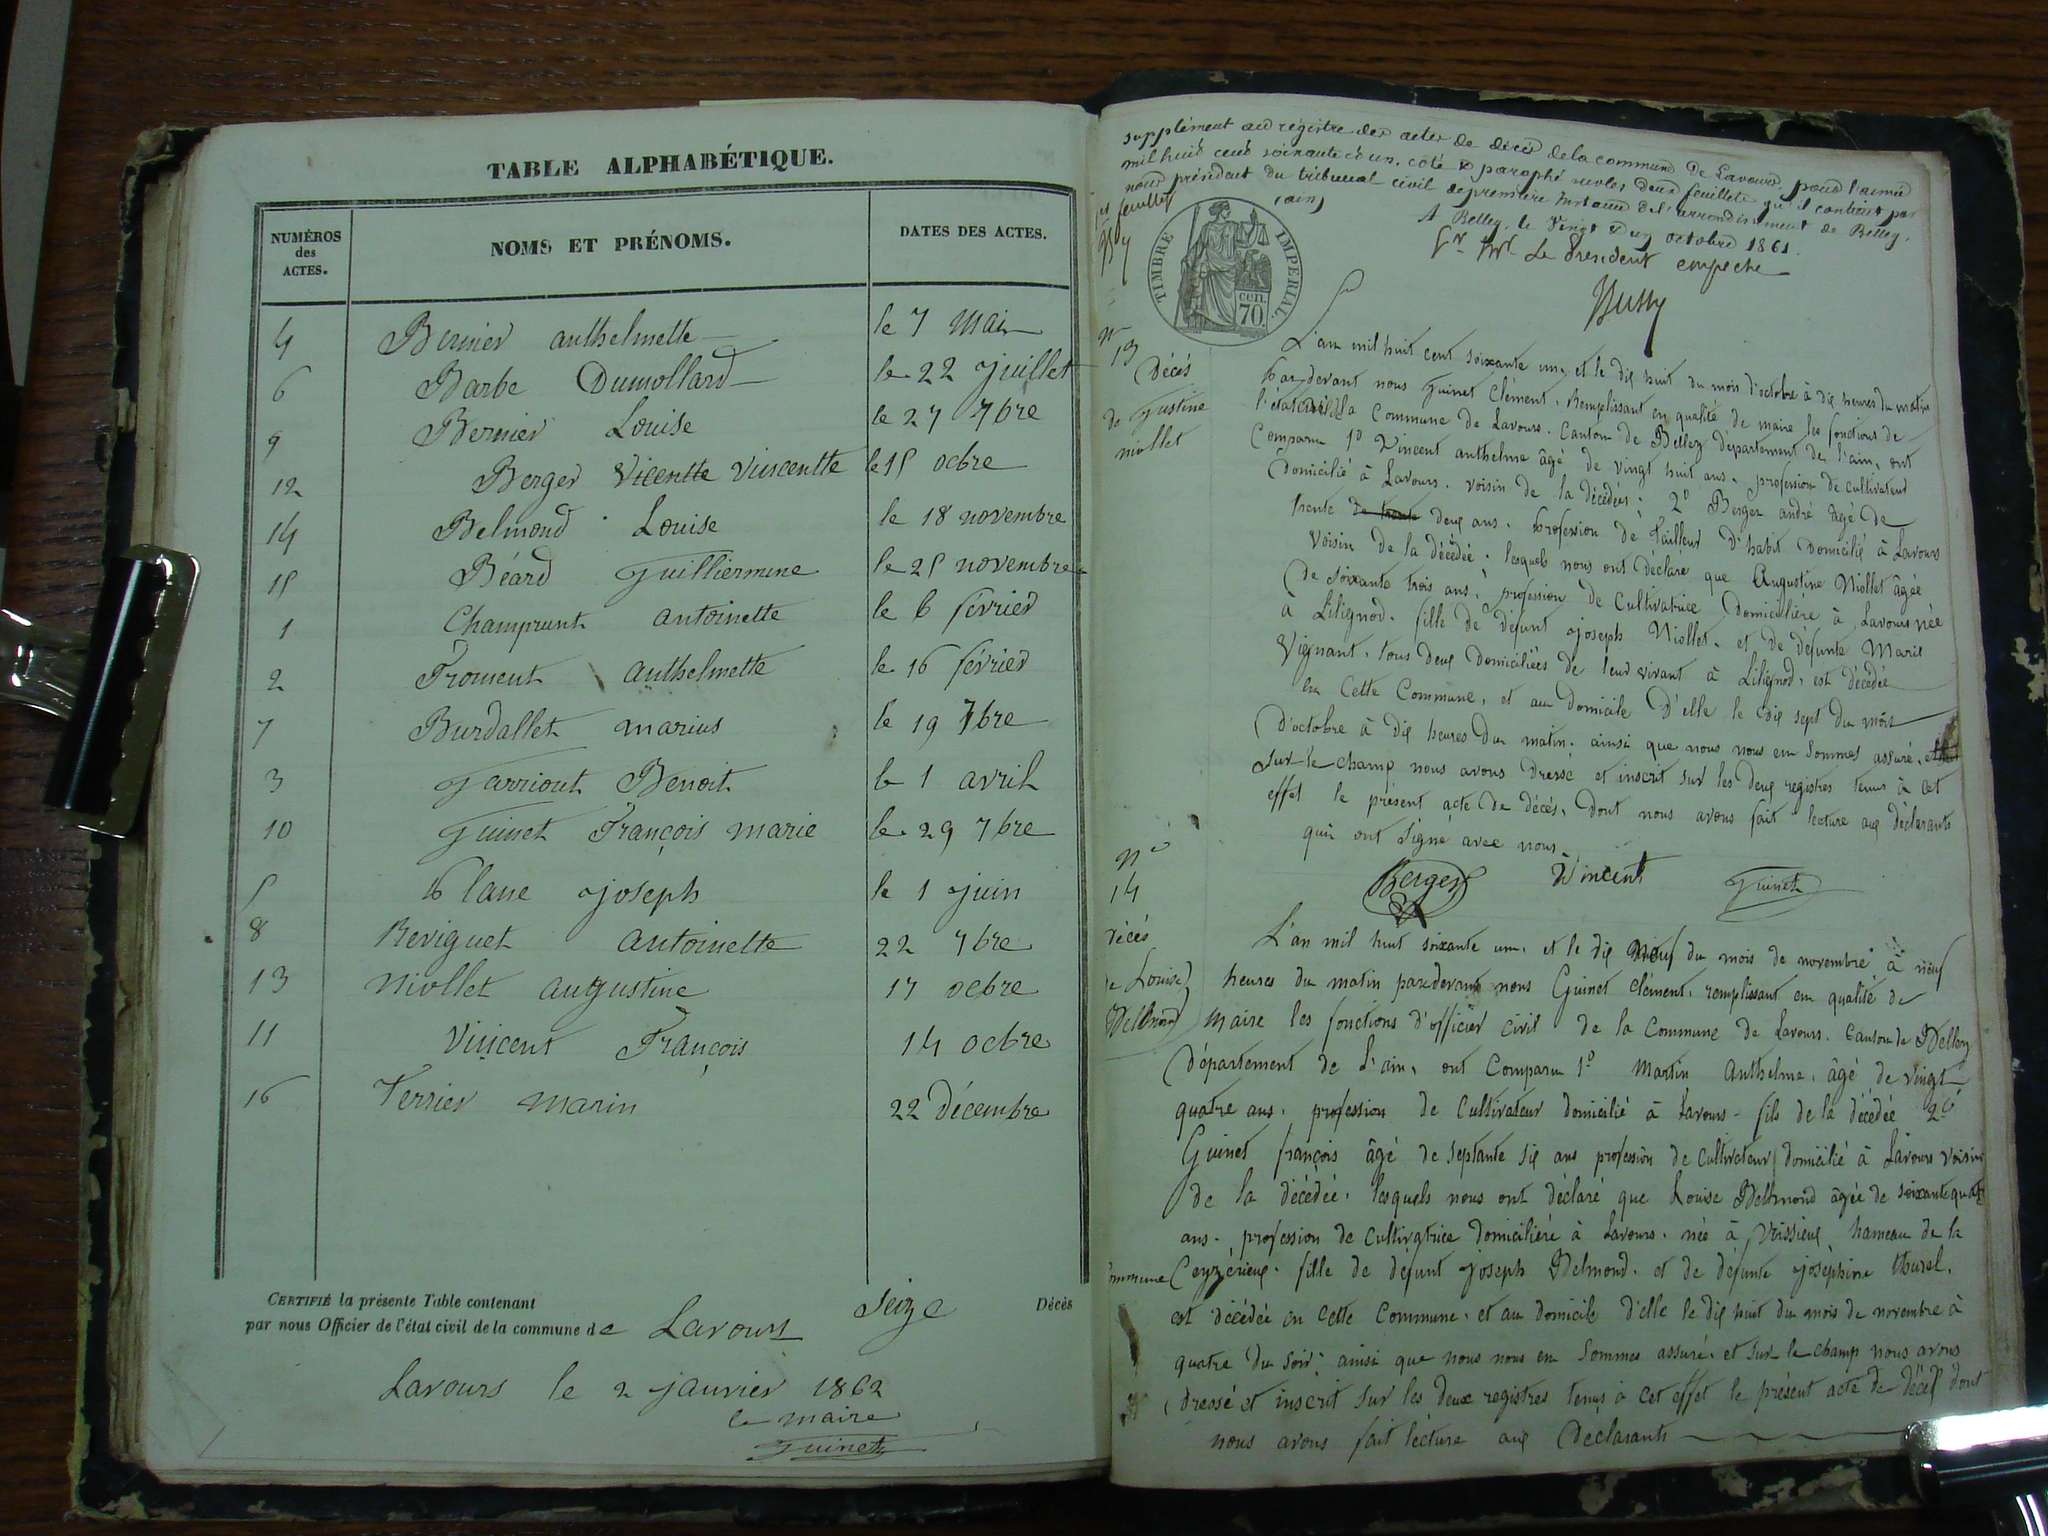 TABLE ALPHABÉTIQUE.
NUMÉROS des ACTES.
NOMS ET PRÉNOMS.
DATES DES ACTES.
4 Bernier anthelmette le 7 Mai
6 Barbe Dumollard le 22 juillet
9 Bernier Louise le 27 7bre
12 Berger Vicentte Vinscentte le 15 octbre
14 Belmond Louise le 18 novembre
15 Béard Guilliermine le 25 novembre
1 Champrunt antoinette le 6 février
2 Froment anthelmette le 16 février
7 Burdallet marius le 19 7bre
3 Garriout Benoit le 1 avril
10 Guinet François marie le 29 7bre
5 Plane joseph le 1 juin
8 Reviguet antoinette 22 7bre
13 Niollet augustine 17 octbre
11 Vinçent François 14 octbre
16 Terrier Marin 22 Décembre
CERTIFIÉ la présente Table contenant seize Décès
par nous Officier de l'état civil de la commune de Lavours
Lavours le 2 janvier 1862
le maire
Guinet
supplément au registre des actes de décès de la commune De Lavours, pour l'année
mil huit cent soixante et un, coté & paraphé sur les deux feuillets qu'il contient par
nous président du tribunal civil de première instance de l'arrondissement de Belley,
(ain)
feuillet
A Belley, le vingt & un octobre 1861.
Le President empeché
TIMBRE IMPERIAL.
cen. 70.
N° 13
Décés
de Justine
niollet
L'an mil huit cent soixante un, et le dix huit du mois d'octobre à dix heures du matin
par devant nous Guinet Clément, Remplissant en qualité de maire les fonctions de
l'état civil la Commune de Lavours. Canton de Belley département de l'ain, ont
Comparu 1° Vincent anthelme âgé de vingt huit ans, profession de cultivateur
Domicilié à Lavours. voisin de la décédée; 2° Berger andré âgé de
trente de trente deux ans. profession de Tailleur d'habit Domicilié à Lavours
Voisin de la décédée; lesquels nous ont déclaré que Augustine Niollet âgée
De soixante trois ans, profession de Cultivatrice Domicilière à Lavours née
à Lilignod. fille de défunt joseph Niollet. et de défunte Marie
Vignant. tous deux domiciliées de leur vivant à Lilignod, est décédée
en Cette Commune, et au Domicile D'elle le dix sept du mois
D'octobre à dix heures du matin. ainsi que nous nous en sommes assuré,
sur le champ nous avons Dressé et inscrit sur les deux registres tenus à cet
effet le présent acte de décés, dont nous avons fait lecture aux déclarants
qui ont signé avec nous.
Berger Vincent Guinet
N°
14
décés
de Louise
Belmond
L'an mil huit soixante un, et le dix neuf du mois de novembre à neuf
heures du matin par devant nous Guinet clément, remplissant en qualité de
Maire les fonctions d'officier civil de la Commune de Lavours. Canton de Belley
Département de L'ain, ont Comparu 1° Martin Anthelme, âgé de vingt
quatre ans. profession de Cultivateur domicilié à Lavours - fils de la décédée 2°
Guinet françois âgé de septante six ans profession de cultivateur domicilié à Lavours voisin
de la décédée, lesquels nous ont déclaré que Louise Belmond âgée de soixante quatre
ans. profession de cultivatrice domicilière à Lavours. née à Vrissieux, hameau de la
Commune Ceyzérieux. fille de défunt joseph Belmond. et de défunte joséphine
est décédée en Cette Commune, et au domicile d'elle le dix huit du mois de novembre à
quatre du soir; ainsi que nous nous en sommes assuré, et sur le champ nous avons
dressé et inscrit sur les deux registres tenus à cet effet le présent acte de décés dont
nous avons fait lecture aux Declarants